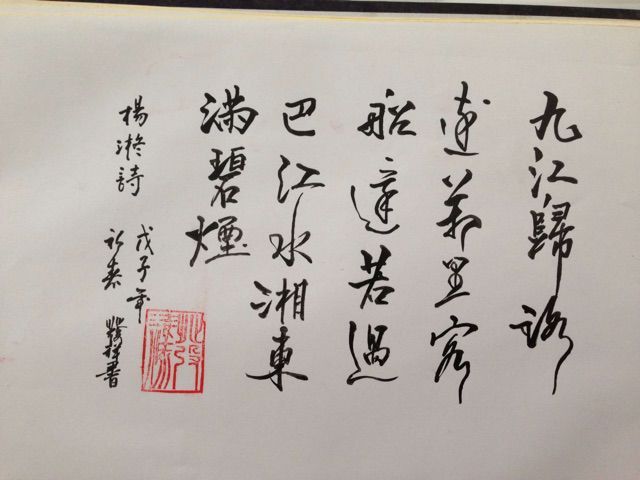 九江歸路
遠萬里客
船還若過
巴江水湘東
滿碧煙
楊凝詩
戊子年
初春 祥書